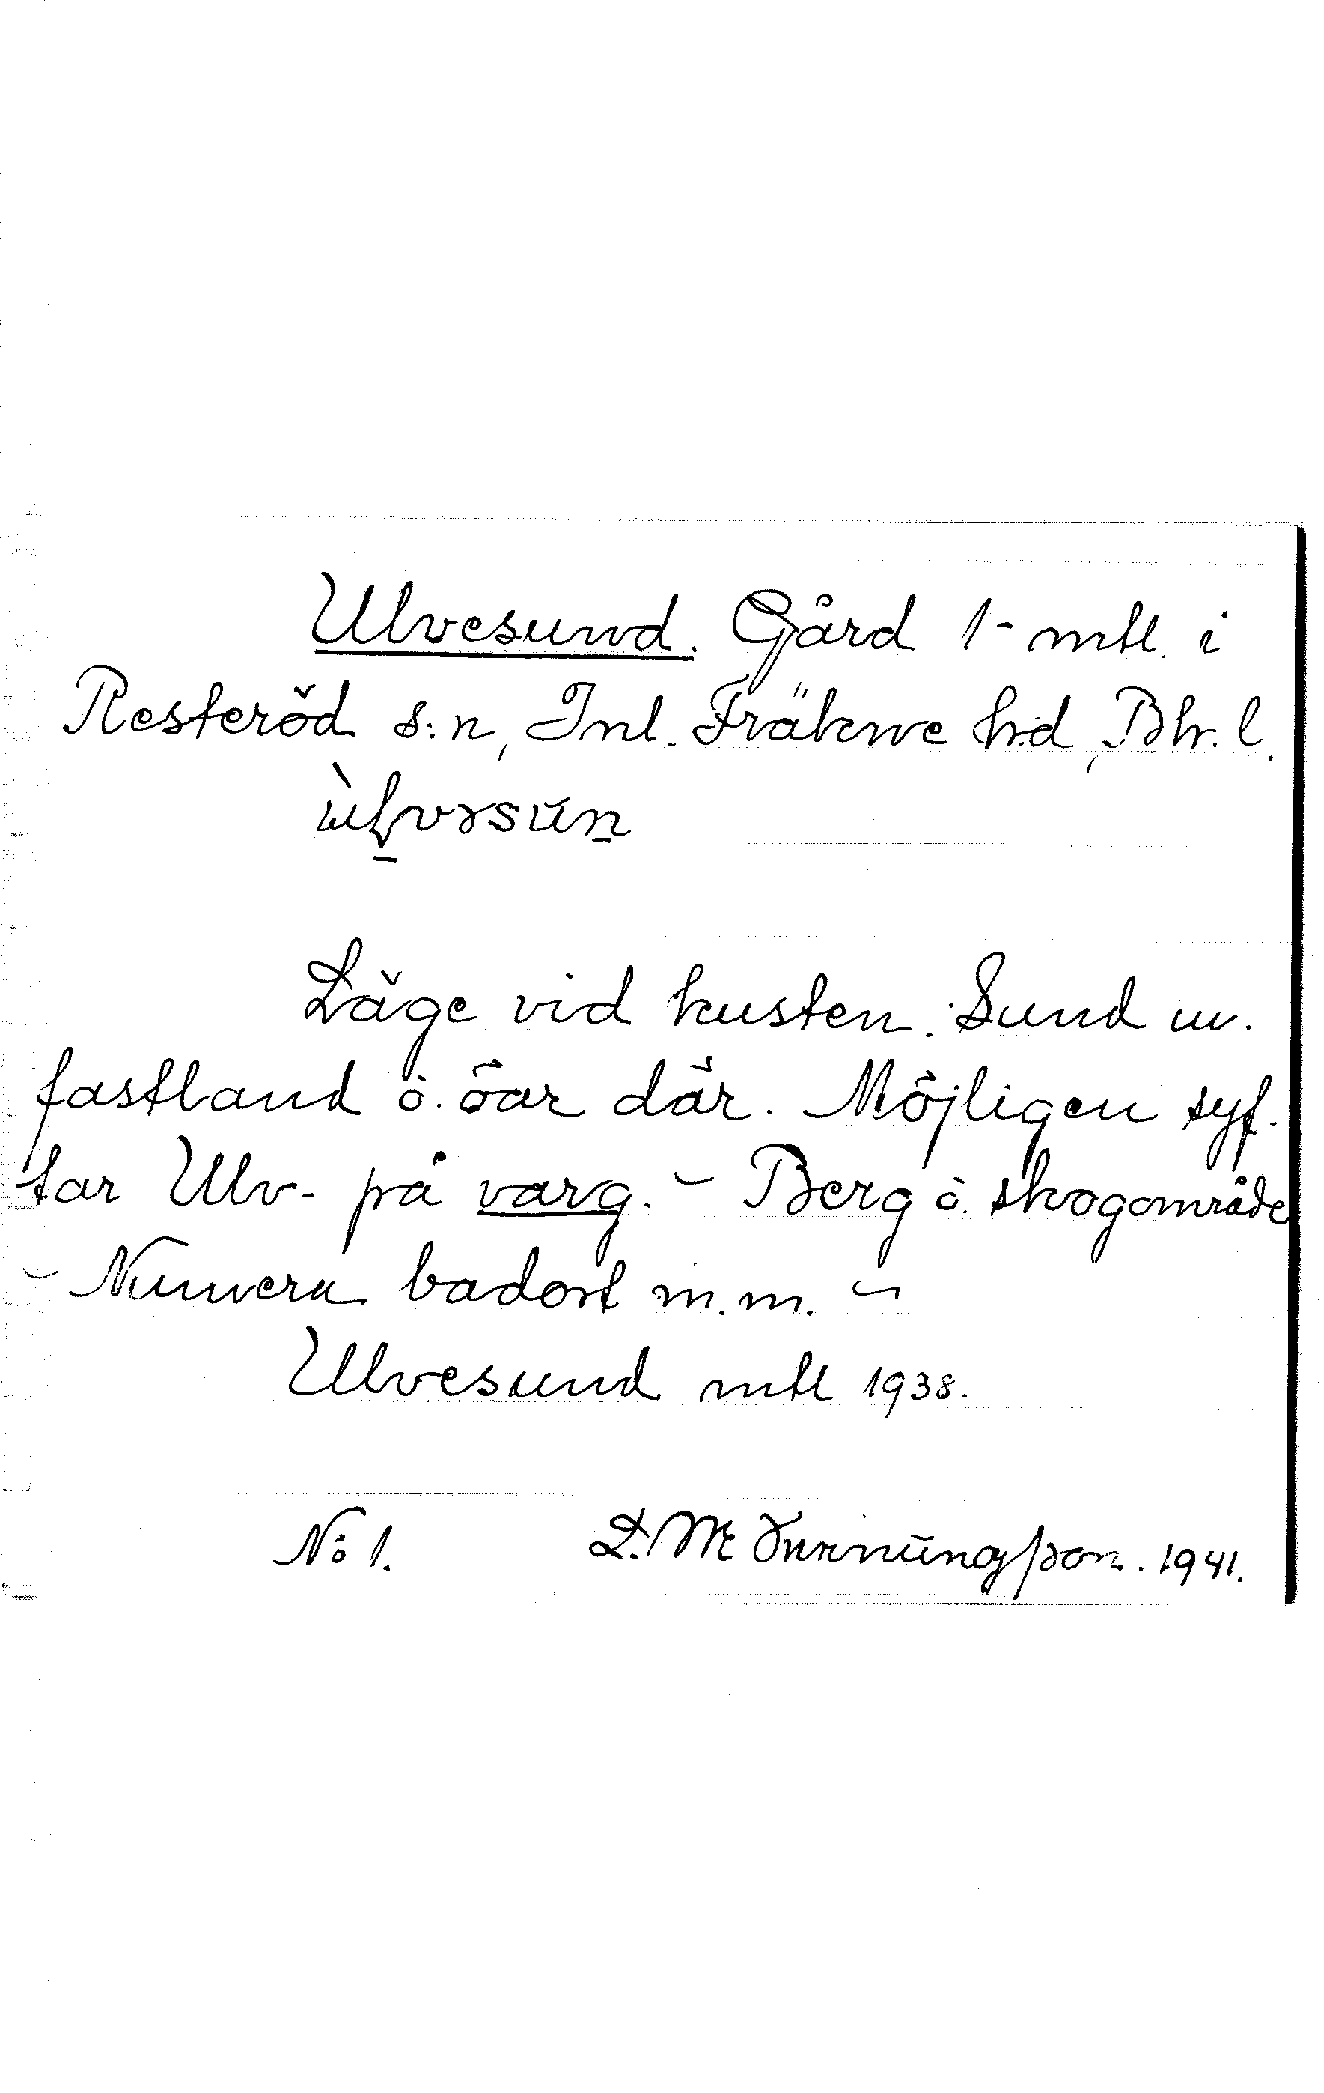 Ulvesund. Gård 1- mtl. i
Resteröd s:n, Inl. Fräkne hd, Bh. l.
Läge vid kusten. Sund m.
fastland o. öar där. Möjligen syf-
tar Ulv- på varg. - Berg o. skogområde
- Numera badort m.m. -
Ulvesund mtl 1938.
No 1. 1941.